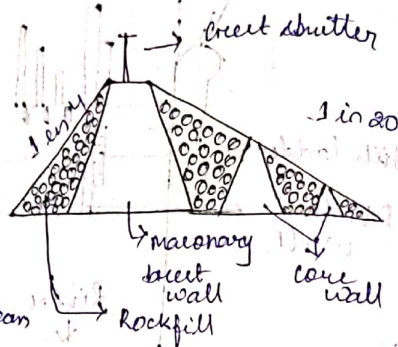 crest shutter
1 in 4
1 in 20
masonary
brest
wall
core
wall
Rockfill